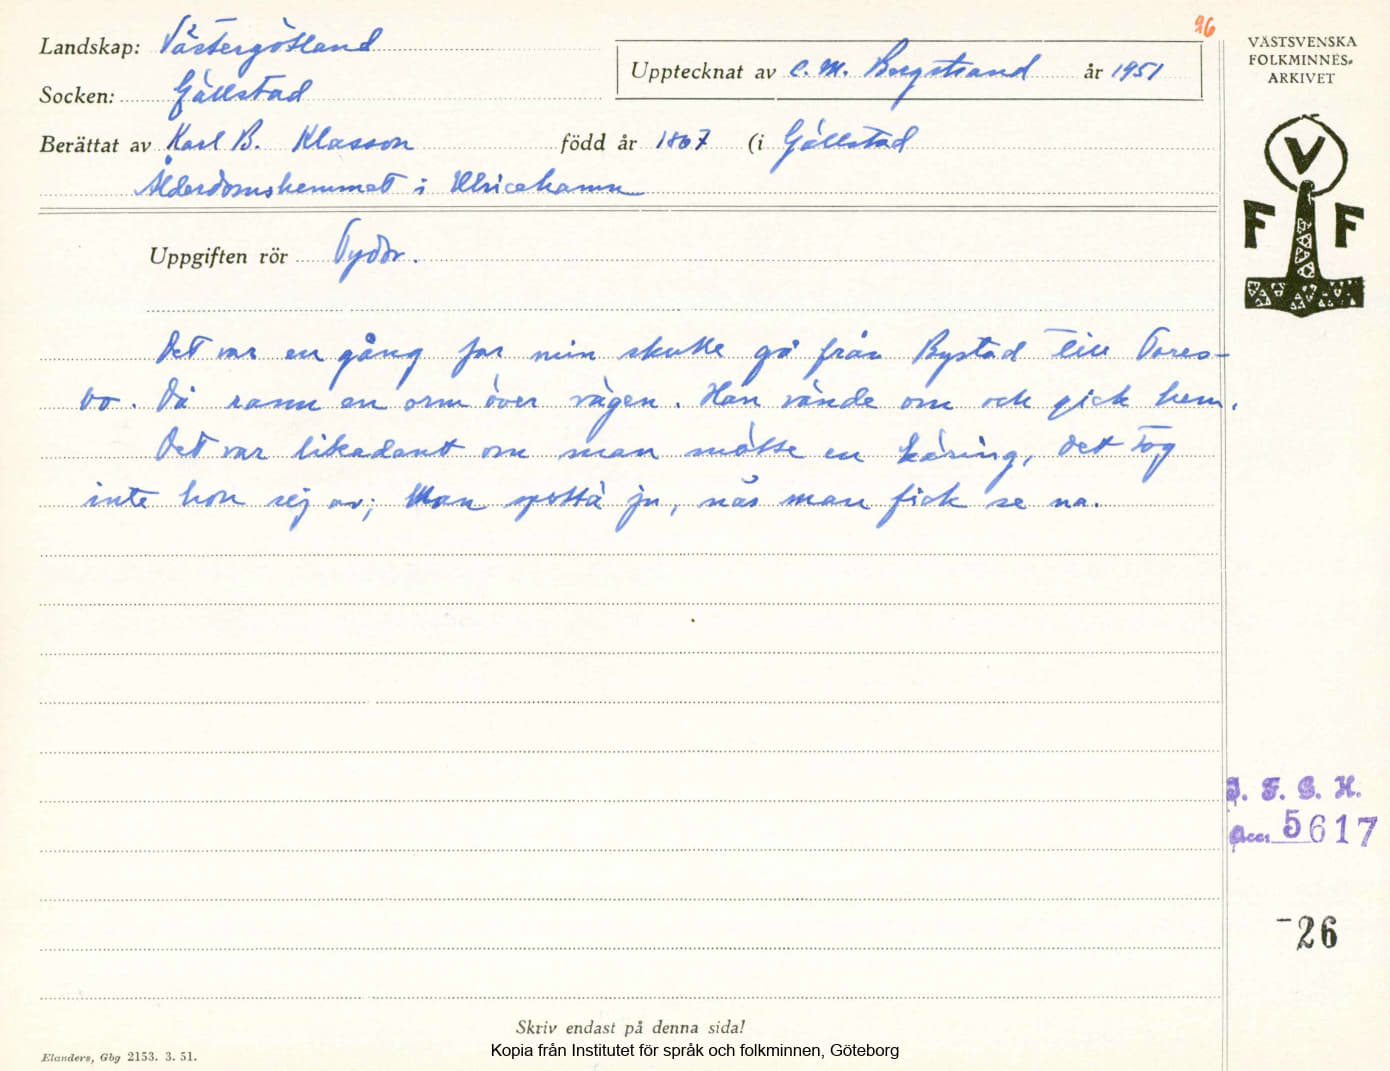 26
Landskap: Västergötland
Upptecknat av C. M. Bergstrand år 1951
Socken: Gällstad
Berättat av Karl B. Klasson född år 1867 (i Gällstad
Ålderdomshemmet i Ulricehamn
VÄSTSVENSKA
FOLKMINNES-
ARKIVET
V
F F
Uppgiften rör Tydor.
Det var en gång far min skulle gå från Bystad till Tores-
bo. Då rann en orm över vägen. Han vände om och gick hem.
Det var likadant om man mötte en käring, det tog
inte hon sej av; Man spotta ju, när man fick se na.
I. F. G. H.
Acc. 5617
-26
Skriv endast på denna sida!
Kopia från Institutet för språk och folkminnen, Göteborg
Elanders, Gbg 2153. 3. 51.